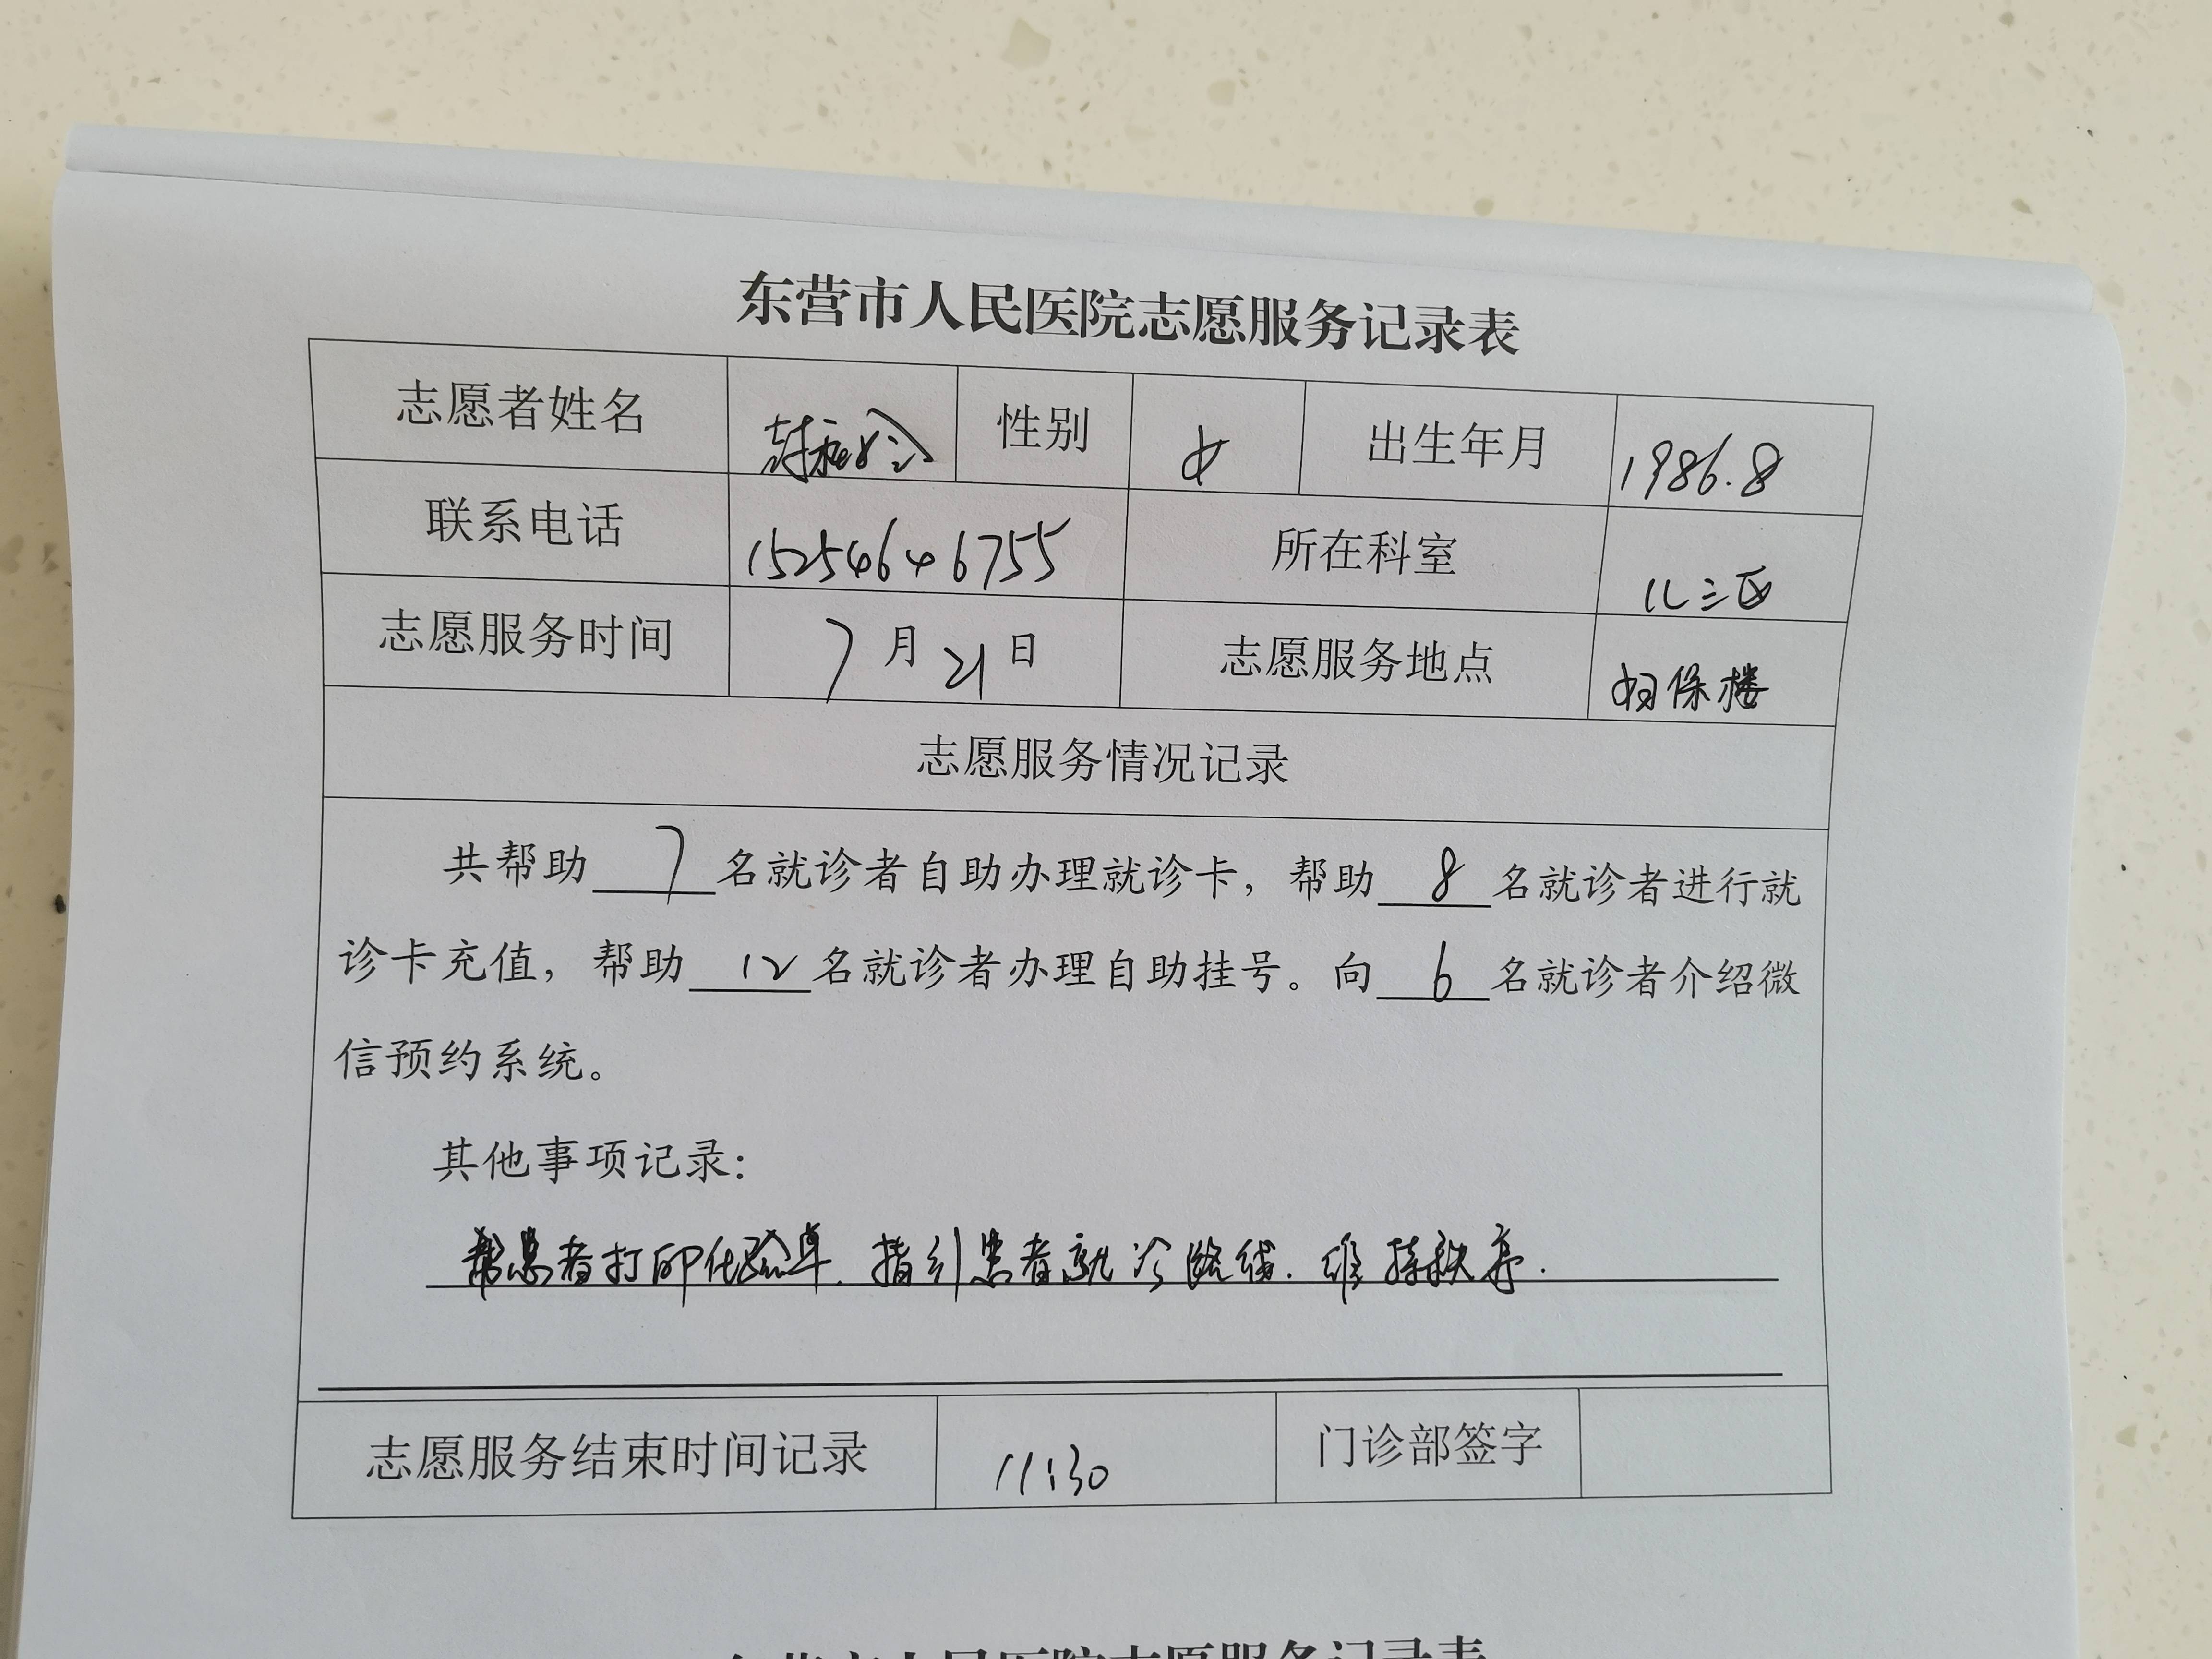 东营市人民医院志愿服务记录表
志愿者姓名 性别 女 出生年月 1986.8
联系电话 15254646755 所在科室 儿三区
志愿服务时间 7月21日 志愿服务地点 妇保楼
志愿服务情况记录
共帮助 7 名就诊者自助办理就诊卡，帮助 8 名就诊者进行就
诊卡充值，帮助 12 名就诊者办理自助挂号。向 6 名就诊者介绍微
信预约系统。
其他事项记录：
帮患者打印化验单. 指引患者就诊路线. 维持秩序.
志愿服务结束时间记录 11:30 门诊部签字
东营市人民医院志愿服务记录表